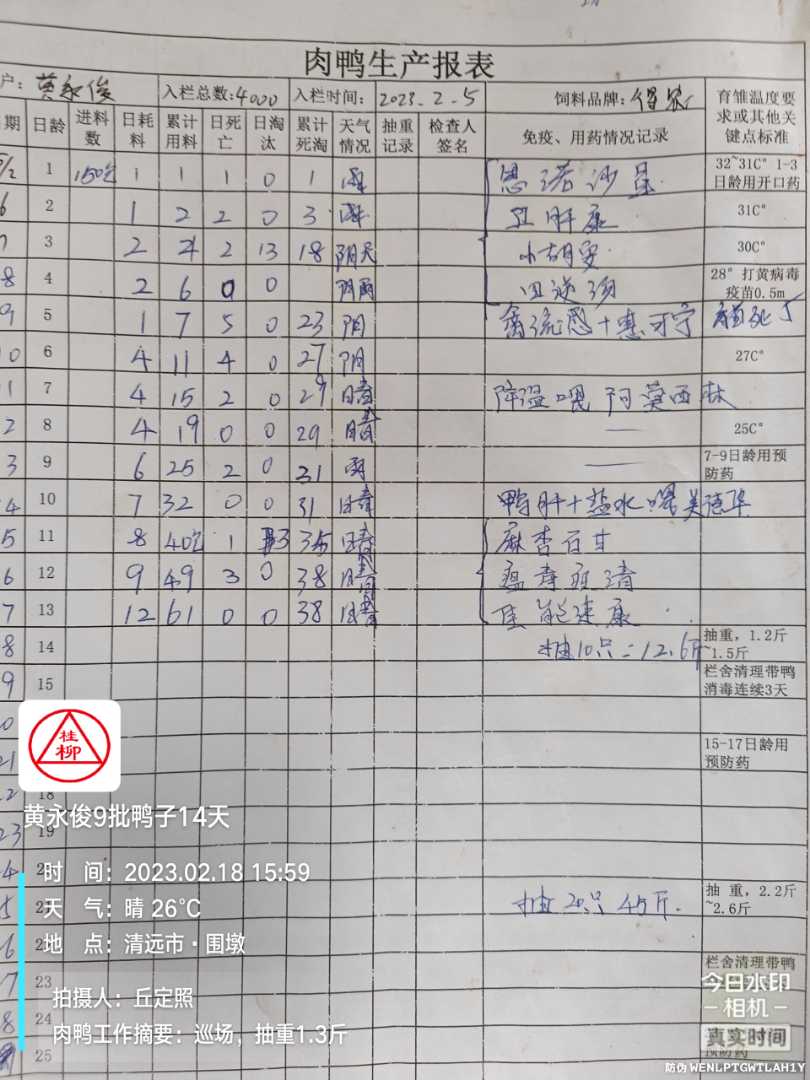 肉鸭生产报表
户: 黄永俊 入栏总数: 4000 入栏时间: 2023.2.5 饲料品牌: 得农 育雏温度要求或其他关键点标准
期 日龄 进料数 日耗料 累计用料 日死亡 日淘汰 累计死淘 天气情况 抽重记录 检查人签名 免疫、用药情况记录
5/2 1 150包 1 1 1 0 1 恩诺沙星 32~31C° 1-3日龄用开口药
6 2 1 2 2 0 3 肝康 31C°
7 3 2 4 2 13 18 阴天 30C°
8 4 2 6 0 0 阴雨 28° 打黄病毒疫苗0.5m
9 5 1 7 5 0 23 阴 禽流感+
10 6 4 11 4 0 27 阴 27C°
11 7 4 15 2 0 29 晴 降温 喂 阿莫西林
12 8 4 19 0 0 29 晴 — 25C°
13 9 6 25 2 0 31 雨 — 7-9日龄用预防药
14 10 7 32 0 0 31 晴 鸭肝+盐水
15 11 8 40包 1 3 35 晴 麻杏石甘
16 12 9 49 3 0 38 晴 瘟毒
17 13 12 61 0 0 38 晴 速康
18 14 抽10只=12.6斤 抽重, 1.2斤~1.5斤
19 15 栏舍清理带鸭消毒连续3天
20
21 15-17日龄用预防药
22 18
23 19
24
25 抽20只 45斤. 抽 重, 2.2斤~2.6斤
26
27 23 栏舍清理带鸭
28 24
25 预防药
桂柳
黄永俊9批鸭子14天
时 间: 2023.02.18 15:59
天 气: 晴 26℃
地 点: 清远市·围墩
拍摄人: 丘定照
肉鸭工作摘要: 巡场, 抽重1.3斤
今日水印
-相机-
真实时间
防伪 WENLPTGWTLAH1Y